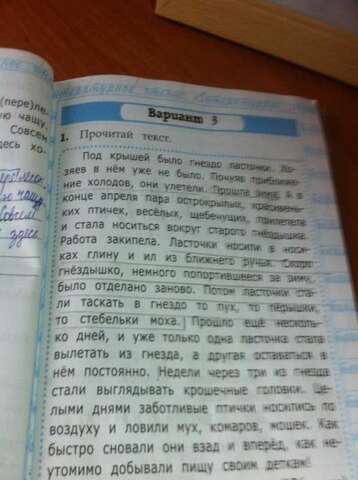 (пере)ле-
ую чашу,
Совсем
десь хо-
Литературное чтение
Вариант 3
1. Прочитай текст.
Под крышей было гнездо ласточки. Хо-
зяев в нём уже не было. Почуяв приближе-
ние холодов, они улетели. Прошла зима, и в
конце апреля пара острокрылых, красивень-
ких птичек, весёлых, щебечущих, прилетела
и стала носиться вокруг старого гнёздышка.
Работа закипела. Ласточки носили в носи-
ках глину и ил из ближнего ручья. Скоро
гнёздышко, немного попортившееся за зиму,
было отделано заново. Потом ласточки ста-
ли таскать в гнездо то пух, то пёрышки,
то стебельки моха. Прошло ещё несколь-
ко дней, и уже только одна ласточка стала
вылетать из гнезда, а другая оставаться в
нём постоянно. Недели через три из гнезда
стали выглядывать крошечные головки. Це-
лыми днями заботливые птички носились по
воздуху и ловили мух, комаров, мошек. Как
быстро сновали они взад и вперёд, как не-
утомимо добывали пищу своим деткам!